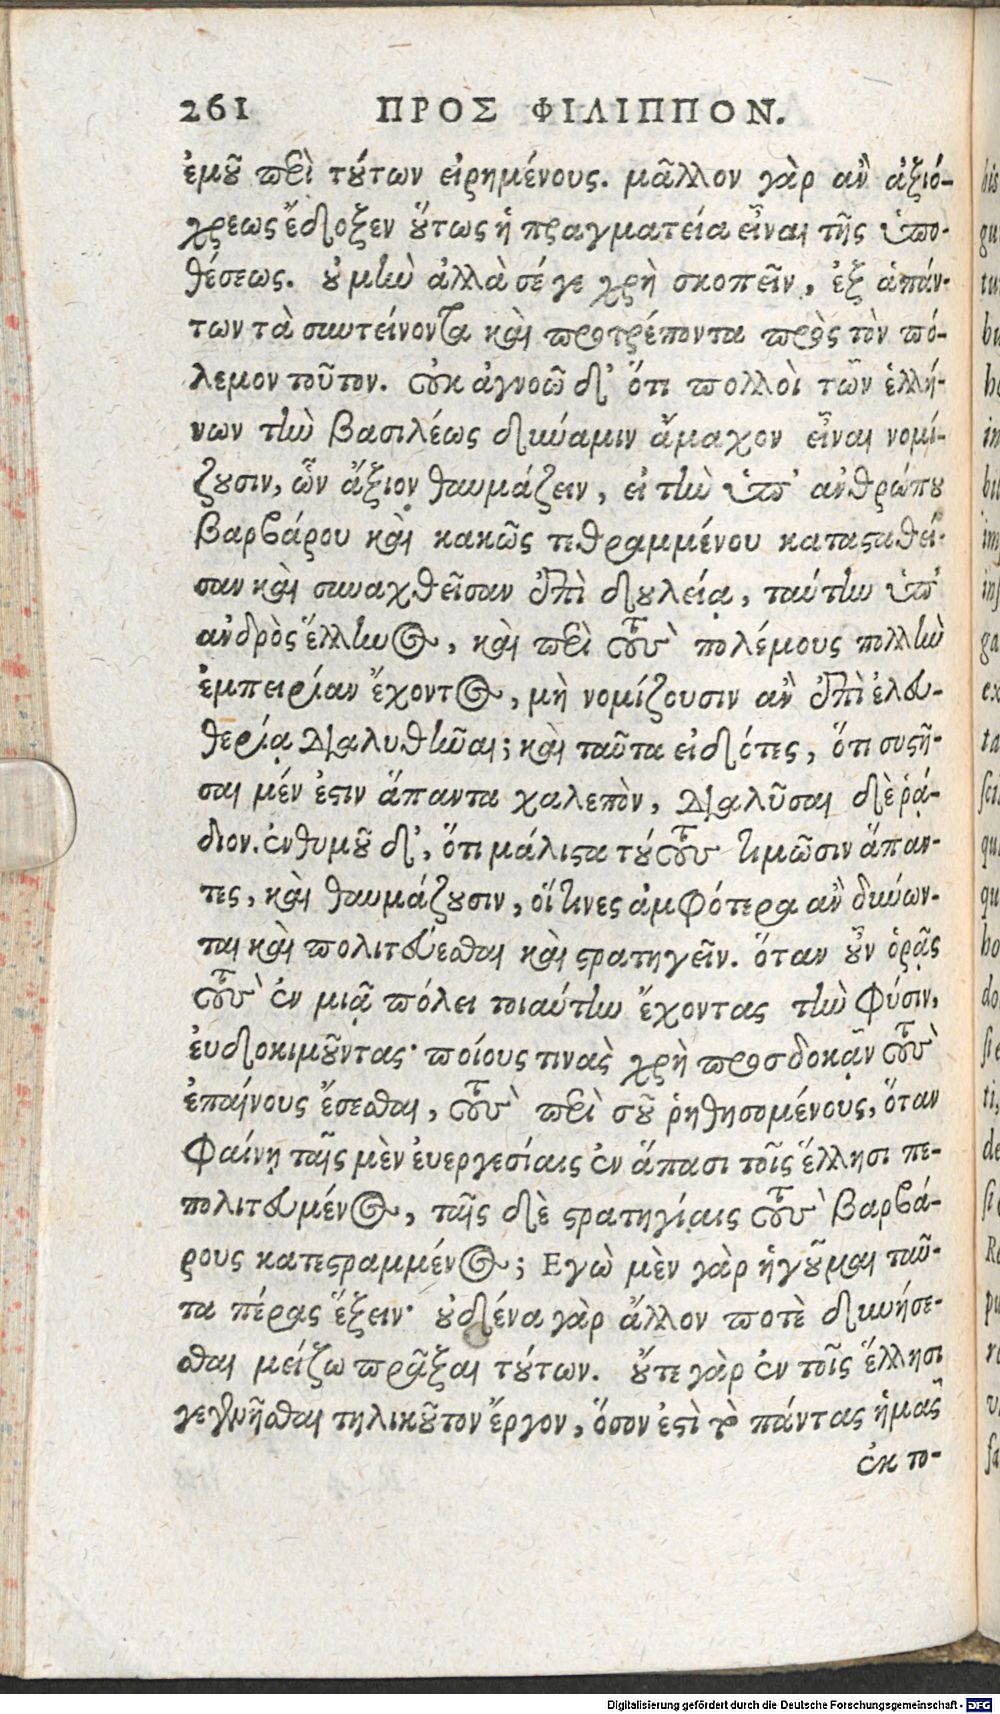 261 ΠΡΟΣ ΦΙΛΙΠΠΟΝ.
ἐμοῦ περὶ τούτων εἰρημένους. μᾶλλον γὰρ ἂν ἀξιό-
χρεως ἔδοξεν οὕτως ἡ πραγματεία εἶναι τῆς ὑπο-
θέσεως. οὐ μὴν ἀλλὰ σέ γε χρὴ σκοπεῖν, ἐξ ἁπάν-
των τὰ συντείνοντα καὶ προτρέποντα πρὸς τὸν πό-
λεμον τοῦτον. οὐκ ἀγνοῶ δ’ ὅτι πολλοὶ τῶν ἑλλή-
νων τὴν βασιλέως δύναμιν ἄμαχον εἶναι νομί-
ζουσιν, ὧν ἄξιον θαυμάζειν, εἰ τὴν ὑπ’ ἀνθρώπου
βαρβάρου καὶ κακῶς τεθραμμένου κατασταθεῖ-
σαν καὶ συναχθεῖσαν ἐπὶ δουλείᾳ, ταύτην ὑπ’
ἀνδρὸς ἕλληνος, καὶ περὶ τοὺς πολέμους πολλὴν
ἐμπειρίαν ἔχοντος, μὴ νομίζουσιν ἂν ἐπὶ ἐλευ-
θερίᾳ διαλυθῆναι; καὶ ταῦτα εἰδότες, ὅτι συστῆ-
σαι μέν ἐστιν ἅπαντα χαλεπὸν, διαλῦσαι δὲ ῥᾴ-
διον. ἐνθυμοῦ δ’, ὅτι μάλιστα τούτους τιμῶσιν ἅπαν-
τες, καὶ θαυμάζουσιν, οἵτινες ἀμφότερα ἂν δύνων-
ται καὶ πολιτεύεσθαι καὶ στρατηγεῖν. ὅταν οὖν ὁρᾷς
τοὺς ἐν μιᾷ πόλει τοιαύτην ἔχοντας τὴν φύσιν,
ἐυδοκιμοῦντας· ποίους τινὰς χρὴ προσδοκᾷν τοὺς
ἐπαίνους ἔσεσθαι, τοὺς περὶ σοῦ ῥηθησομένους, ὅταν
φαίνῃ ταῖς μὲν ἐυεργεσίαις ἐν ἅπασι τοῖς ἕλλησι πε-
πολιτευμένος, ταῖς δὲ στρατηγίαις τοὺς βαρβά-
ρους κατεστραμμένος; Εγὼ μὲν γὰρ ἡγοῦμαι ταῦ-
τα πέρας ἕξειν· οὐδένα γὰρ ἄλλον ποτὲ δυνήσε-
σθαι μείζω πρᾶξαι τούτων. οὔτε γὰρ ἐν τοῖς ἕλλησι
γεγενῆσθαι τηλικοῦτον ἔργον, ὅσον ἐστὶ τὸ πάντας ἡμᾶς
ἐκ το-
Digitalisierung gefördert durch die Deutsche Forschungsgemeinschaft - DFG